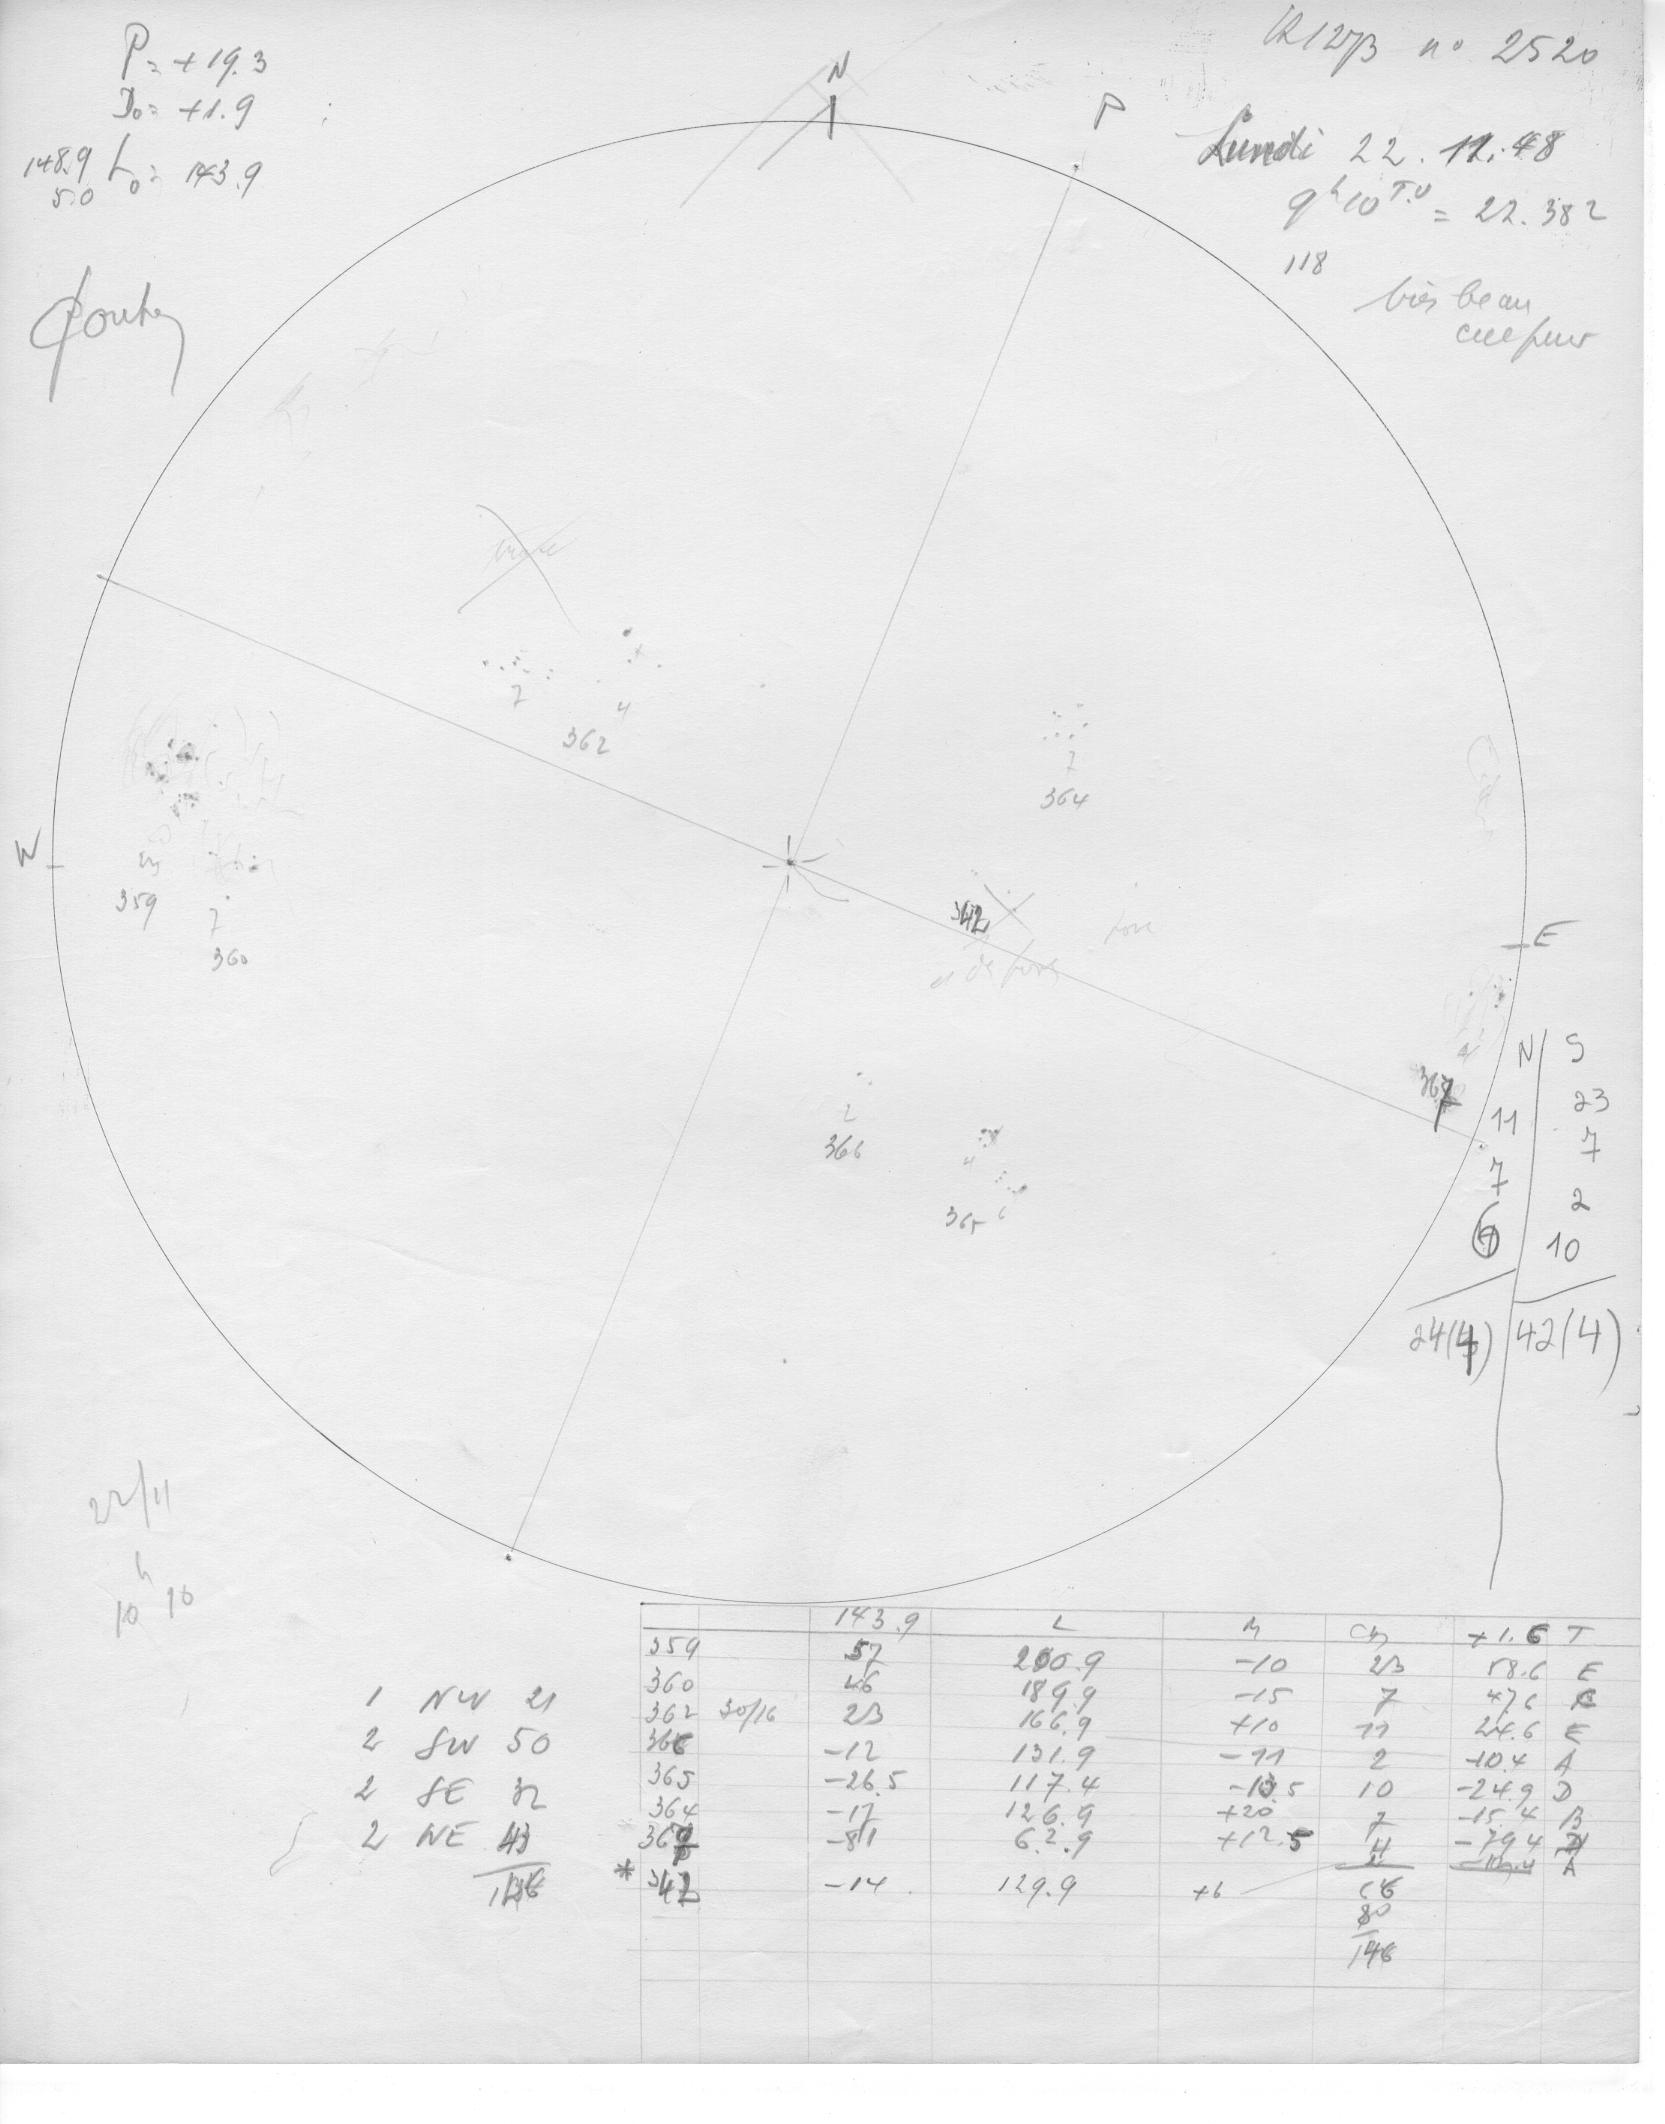 P = +19.3
D₀ = +1.9
148.9 L₀ = 143.9
5.0
n° 2520
Lundi 22.11.48
9h10 T.U = 22.382
118
très beau
N
P
7
4
362
7
364
W
359
7
360
342
E
367
2
366
4
365 6
N S
11 23
7 7
6 2
10
24(4) 42(4)
22/11
10h10
143.9 L M +1.6 T
359 57 200.9 -10 23 58.6 E
360 46 189.9 -15 7 47.6 C
362 30/16 23 166.9 +10 11 24.6 E
366 -12 131.9 -11 2 -10.4 A
365 -26.5 117.4 -10.5 10 -24.9 D
364 -17 126.9 +20 7 -15.4 B
367 -81 62.9 +12.5 4 -79.4
* 342 -14 129.9 +6 A
66
80
146
1 NW 21
2 SW 50
2 SE 32
2 NE 43
146